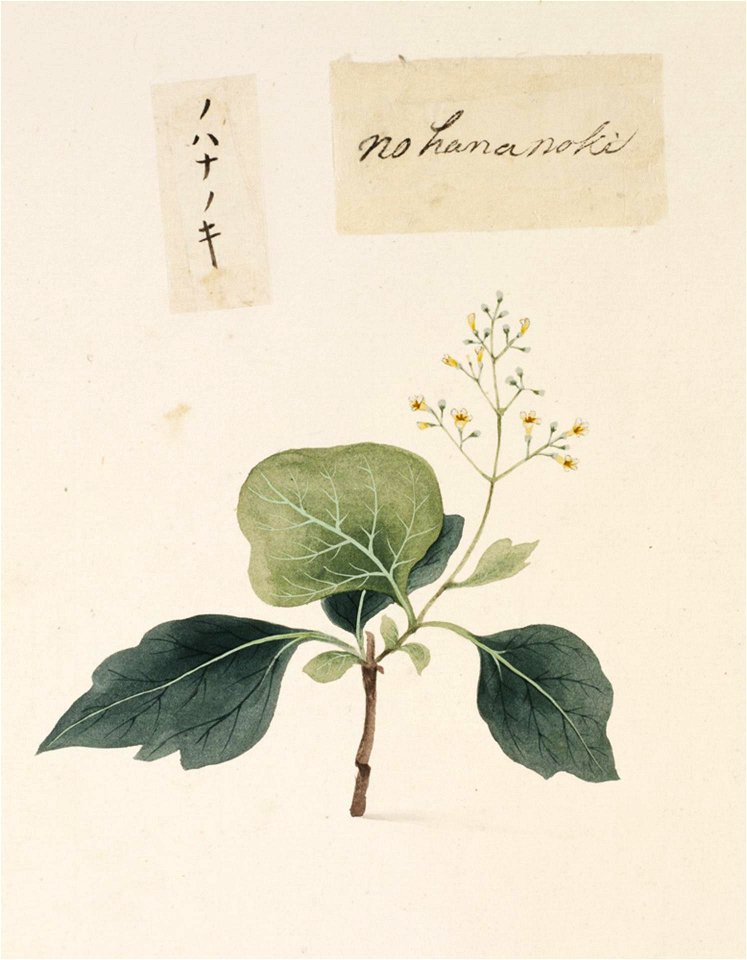 ノハナノキ
no hana noki